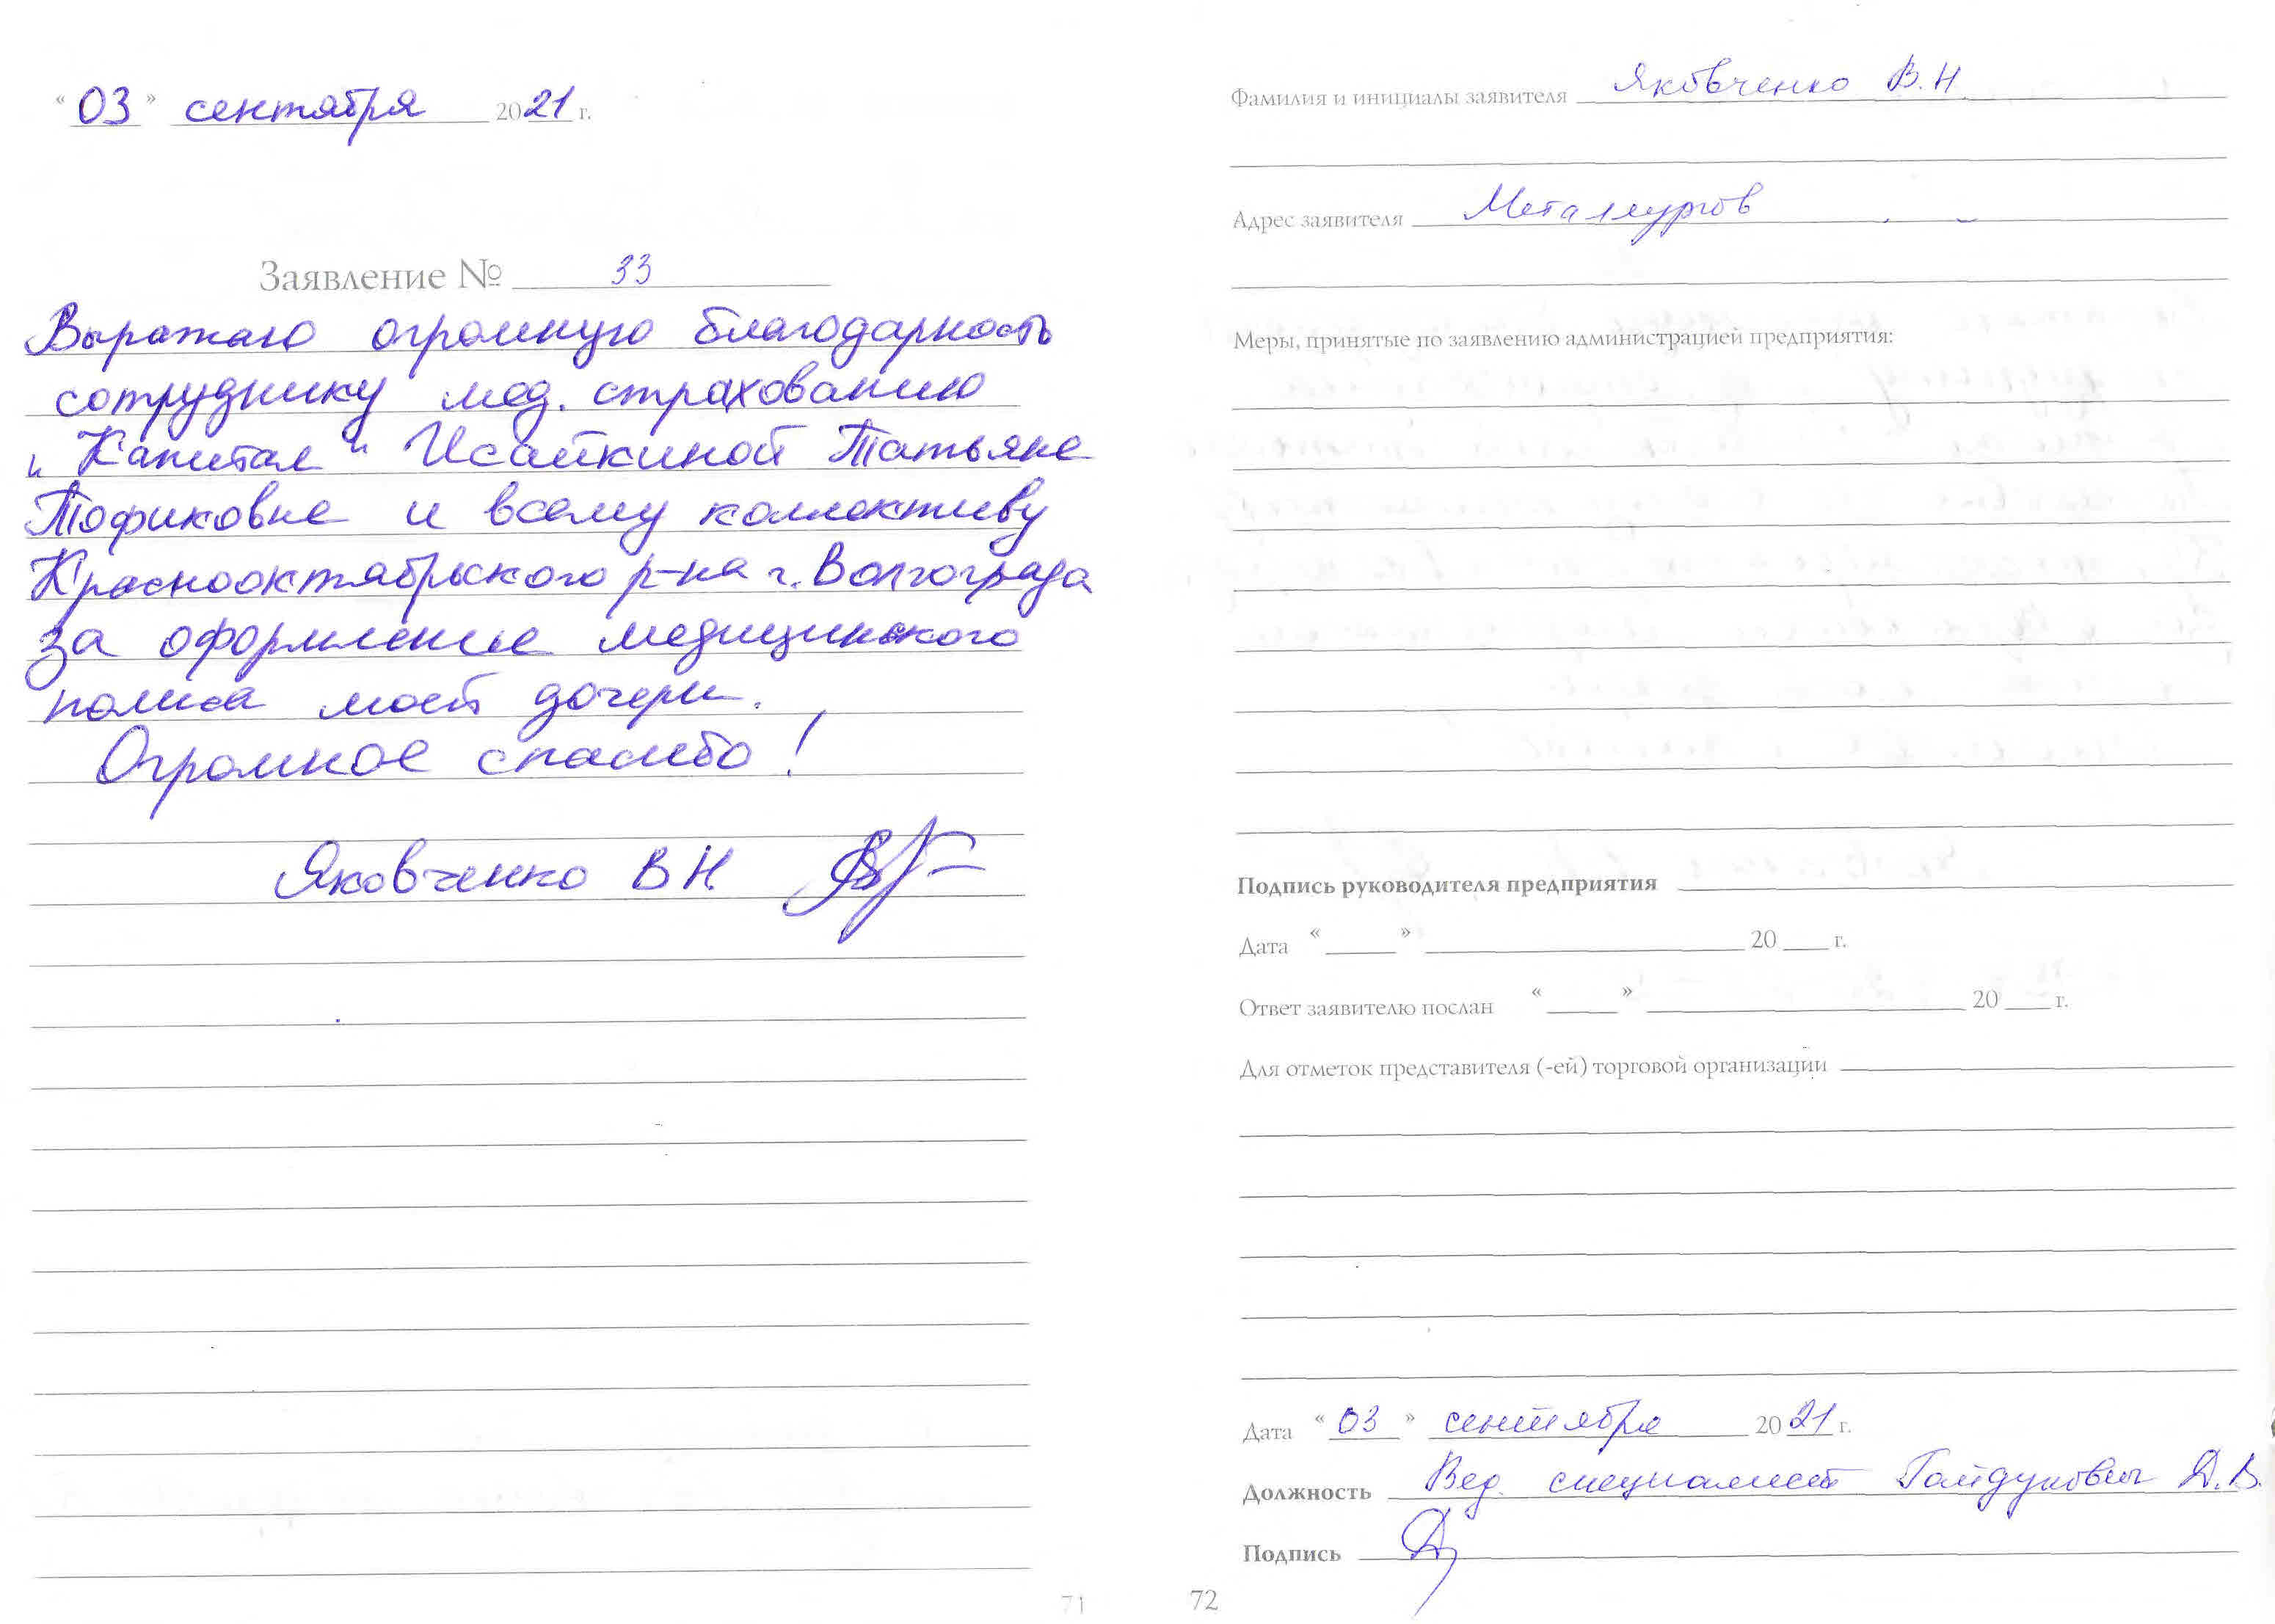 « 03 » сентября 2021 г.
Заявление № 33
Выражаю огромную благодарность
сотруднику мед. страхованию
"Капитал" Исайкиной Татьяне
Тофиковне и всему коллективу
Краснооктябрьского р-на г. Волгограда
за оформление медицинского
полиса моей дочери.
Огромное спасибо!
Яковченко В Н.
71
Фамилия и инициалы заявителя Яковченко В.Н
Адрес заявителя Металлургов
Меры, принятые по заявлению администрацией предприятия:
Подпись руководителя предприятия
Дата « » 20 г.
Ответ заявителю послан « » 20 г.
Для отметок представителя (-ей) торговой организации
Дата « 03 » сентября 2021 г.
Должность Вед. специалист Гайдукович Д.В.
Подпись
72